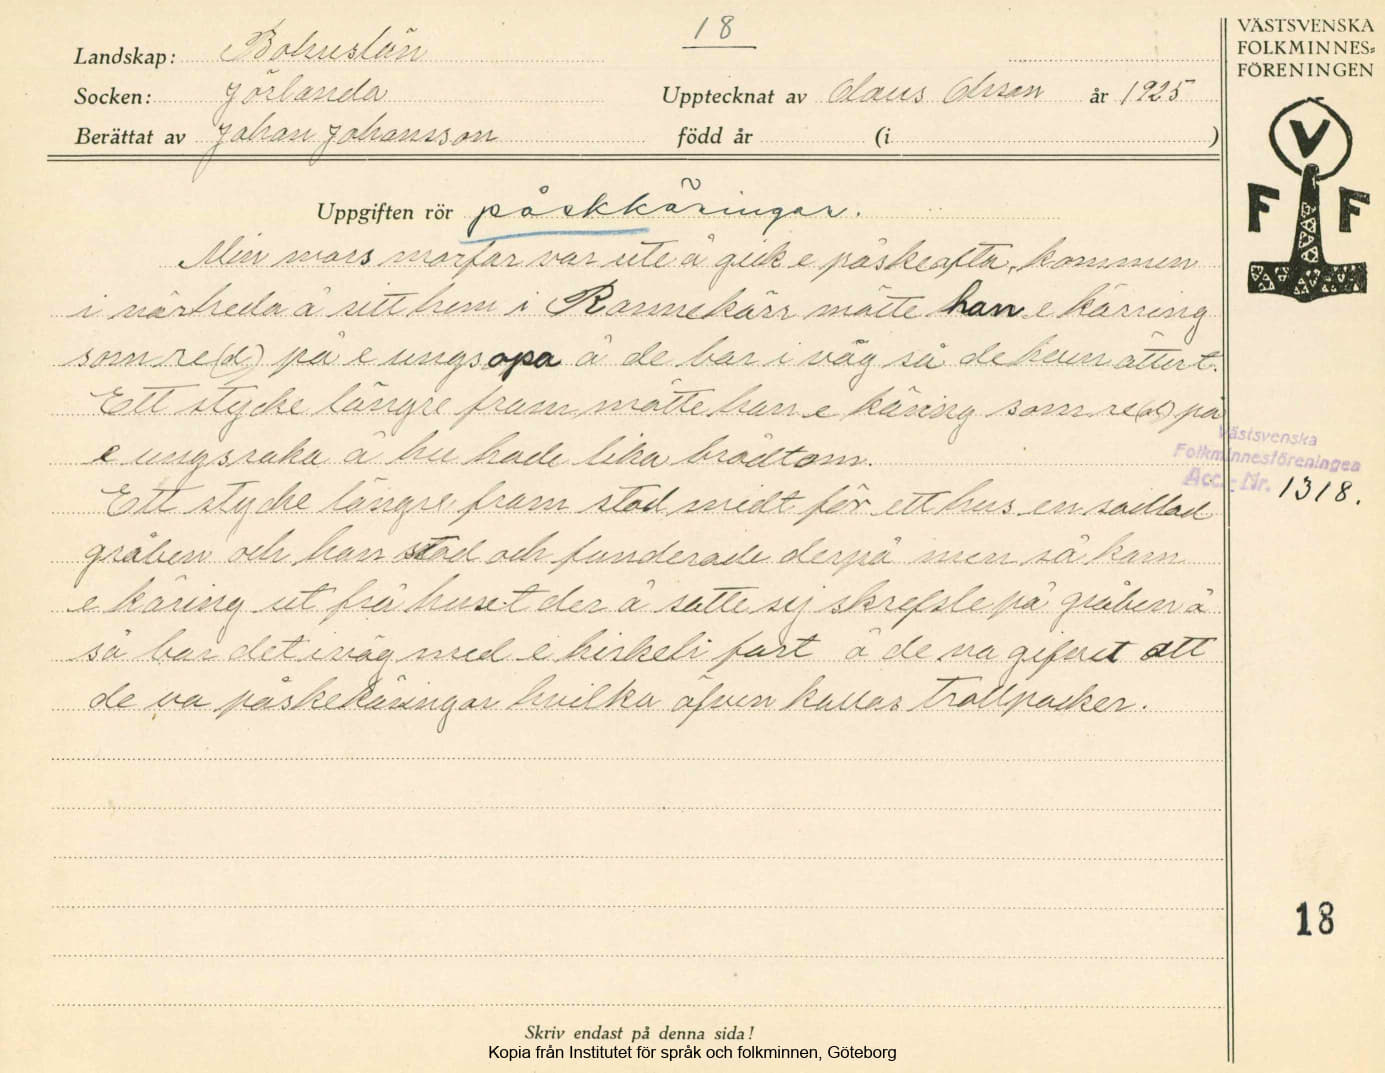 18
VÄSTSVENSKA
FOLKMINNES=
FÖRENINGEN
Landskap: Bohuslän
Socken: Jörlanda
Upptecknat av Claus Olsson år 1925
Berättat av Johan Johansson
född år (i )
V
F F
Uppgiften rör påskkäringar.
Min mors morfar var ute å gick e påskeafta, kommen
i närheda å sitt hem i Rannekärr mötte han e kärring
som re(d) på e ungsopa å de bar i väg så de hven åttert.
Ett stycke längre fram mötte han e käring som re(d) på
e ungsraka å hu hade lika brådtom.
Ett stycke längre fram stod midt för ett hus en sadlad
gråben och han stod och funderade derpå men så kam
e käring ut frå huset der å satte sij skrefsle på gråben å
så bar det iväg med e hiskeli fart å de va gifvet att
de va påskekäringar hvilka äfven kallas trollpacker.
Västsvenska
Folkminnesföreningen
Acc.- Nr. 1318.
18
Skriv endast på denna sida!
Kopia från Institutet för språk och folkminnen, Göteborg